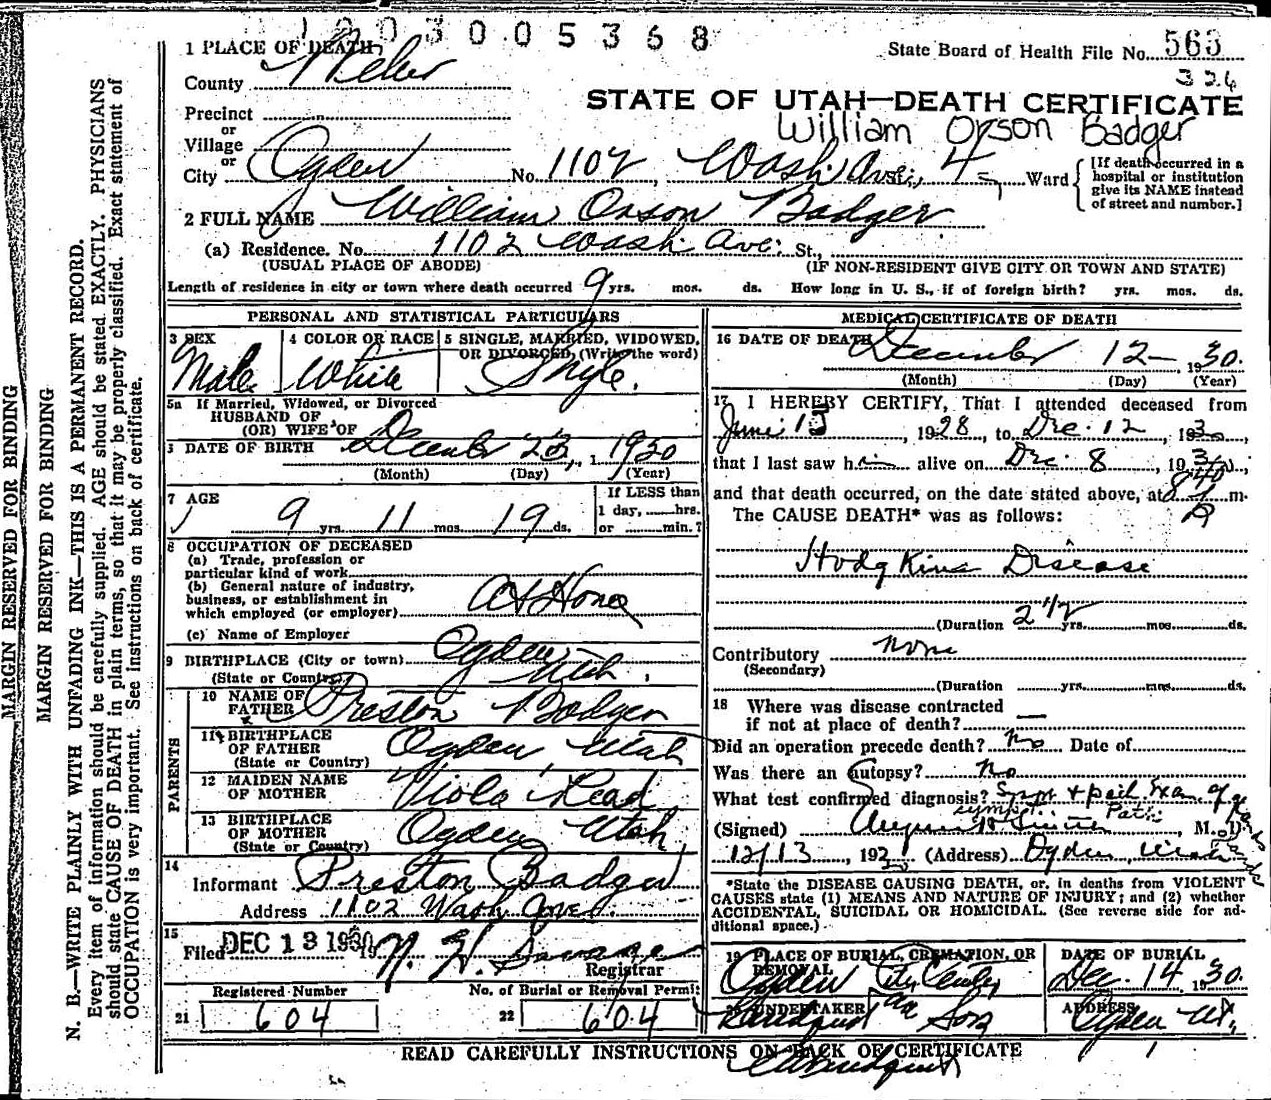 1003005368
1 PLACE OF DEATH
State Board of Health File No. 563
326
County Weber
STATE OF UTAH—DEATH CERTIFICATE
Precinct
William Orson Badger
or
Village
or
City Ogden No. 1102, Wash. Ave. St., 4 Ward
[If death occurred in a
hospital or institution
give its NAME instead
of street and number.]
2 FULL NAME William Orson Badger
(a) Residence. No. 1102 Wash. Ave. St.,
(USUAL PLACE OF ABODE) (IF NON-RESIDENT GIVE CITY OR TOWN AND STATE)
Length of residence in city or town where death occurred 9 yrs. mos. ds. How long in U. S., if of foreign birth? yrs. mos. ds.
PERSONAL AND STATISTICAL PARTICULARS
3 SEX
Male
4 COLOR OR RACE
White
5 SINGLE, MARRIED, WIDOWED,
OR DIVORCED, (Write the word)
Single.
5a If Married, Widowed, or Divorced
HUSBAND OF
(OR) WIFE OF
DATE OF BIRTH December 23, 1920
(Month) (Day) (Year)
7 AGE
9 yrs. 11 mos. 19 ds.
If LESS than
1 day, hrs.
or min.?
8 OCCUPATION OF DECEASED
(a) Trade, profession or
particular kind of work
(b) General nature of industry,
business, or establishment in
which employed (or employer) At Home
(c) Name of Employer
9 BIRTHPLACE (City or town) Ogden
(State or Country) Utah.
PARENTS
10 NAME OF
FATHER Preston Badger
11 BIRTHPLACE
OF FATHER Ogden, Utah
(State or Country)
12 MAIDEN NAME
OF MOTHER Viola Read
13 BIRTHPLACE
OF MOTHER Ogden Utah
(State or Country)
14
Informant Preston Badger
Address 1102 Wash Ave.
15
Filed DEC 13 1930 19
Registrar
Registered Number
21 604
No. of Burial or Removal Permit
22 604
MEDICAL CERTIFICATE OF DEATH
16 DATE OF DEATH December 12, 1930.
(Month) (Day) (Year)
17 I HEREBY CERTIFY, That I attended deceased from
June 15, 1928, to Dec. 12, 1930,
that I last saw him alive on Dec. 8, 1930,
and that death occurred, on the date stated above, at 840 P m.
The CAUSE DEATH* was as follows:
Hodgkins Disease
(Duration 2 1/2 yrs. mos. ds.
Contributory none
(Secondary)
(Duration yrs. mos. ds.
18 Where was disease contracted
if not at place of death? —
Did an operation precede death? No Date of
Was there an Autopsy? No
What test confirmed diagnosis? Sympt & path Exam of glands
sympt. Path. glands
(Signed) M. D.
12/13, 1930 (Address) Ogden, Utah
*State the DISEASE CAUSING DEATH, or, in deaths from VIOLENT
CAUSES state (1) MEANS AND NATURE OF INJURY; and (2) whether
ACCIDENTAL, SUICIDAL OR HOMICIDAL. (See reverse side for ad-
ditional space.)
19 PLACE OF BURIAL, CREMATION, OR
REMOVAL
Ogden City Cemetery
DATE OF BURIAL
Dec. 14 1930.
20 UNDERTAKER
Lindquist and Sons
ADDRESS
Ogden Ut.
READ CAREFULLY INSTRUCTIONS ON BACK OF CERTIFICATE
MARGIN RESERVED FOR BINDING
MARGIN RESERVED FOR BINDING
N. B.—WRITE PLAINLY WITH UNFADING INK—THIS IS A PERMANENT RECORD.
Every item of information should be carefully supplied. AGE should be stated EXACTLY. PHYSICIANS
should state CAUSE OF DEATH in plain terms, so that it may be properly classified. Exact statement of
OCCUPATION is very important. See instructions on back of certificate.